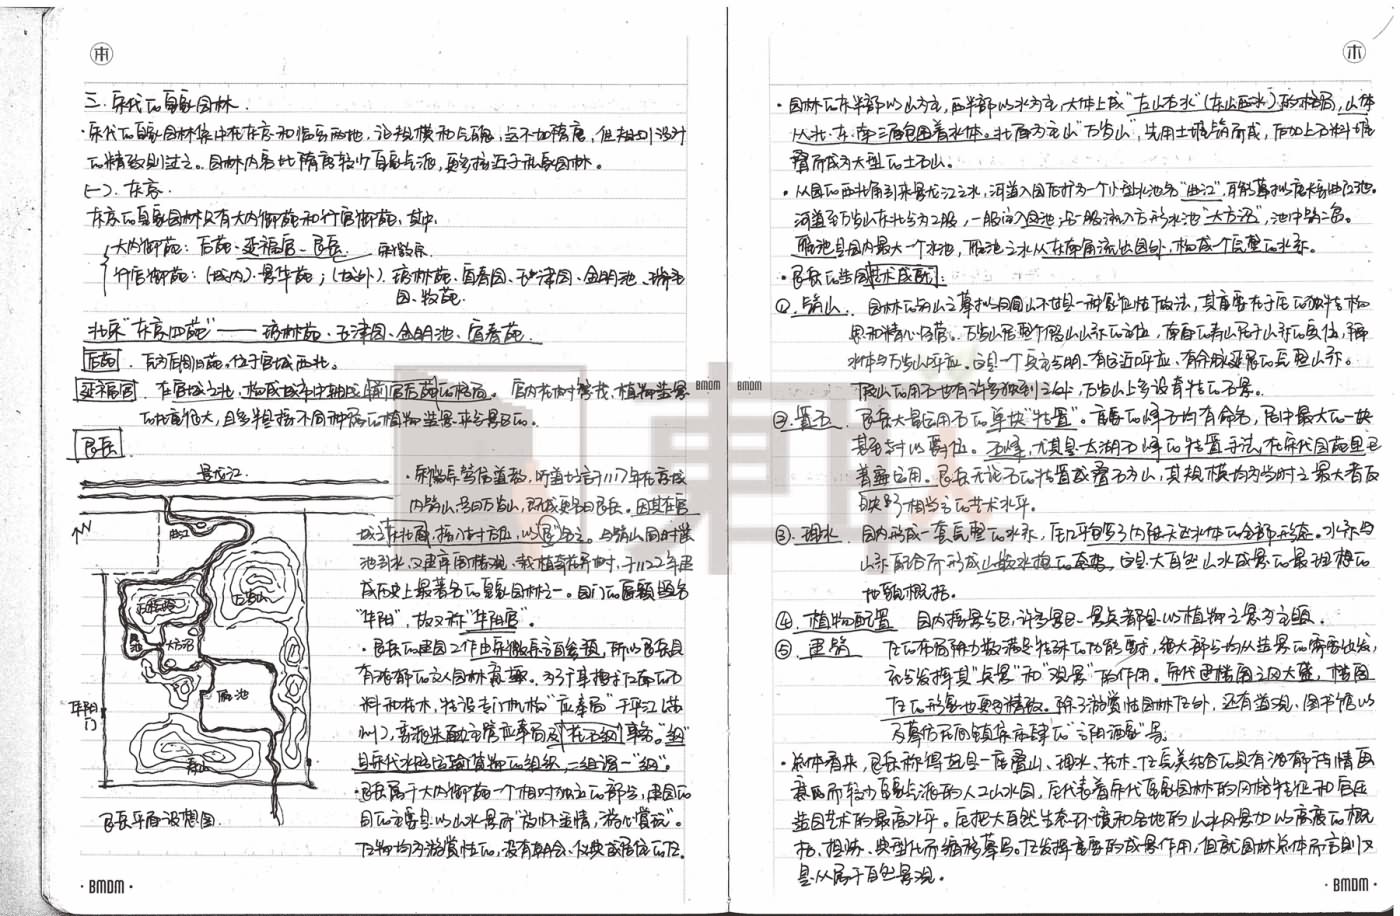 三. 宋代的皇家园林.
· 宋代的皇家园林集中在东京和临安两地, 论规模和气魄, 远不如隋唐, 但规划设计
的精致则过之。园林内容比隋唐较少皇家气派, 更多接近于私家园林。
(一). 东京.
东京的皇家园林只有大内御苑和行宫御苑. 其中:
大内御苑: 后苑、延福宫、艮岳. 宋徽宗
行宫御苑: (城内). 景华苑; (城外). 琼林苑、宜春园、玉津园、金明池、瑞圣
园、牧苑.
北宋"东京四苑" —— 琼林苑、玉津园、金明池、宜春苑.
后苑. 后周旧苑. 位于宫城西北.
延福宫. 在宫城之北, 构成城市中轴线前宫后苑的格局. 宫内花树繁茂, 植物造景
的比重很大, 且多半是指不同种属的植物造景来命景区的.
艮岳
景龙江
曲江
万松岭
万寿山
大方沼
雁池
华阳
门
寿山
艮岳平面设想图.
· 宋徽宗笃信道教, 听道士言于1117年在京城
内筑山, 号曰万岁山, 既成更名曰艮岳. 因其在宫
城东北面, 按八卦方位, 以"艮"名之. 与筑山同时凿
池引水, 又建亭阁楼观、栽植奇花异树, 于1122年建
成历史上最著名的皇家园林之一. 园门的匾额题名
"华阳", 故又称"华阳宫".
· 艮岳的建园工作由宋徽宗亲自参预, 所以艮岳具
有浓郁的文人园林意趣. 为了广事搜求江南的石
料和花木, 特设专门机构"应奉局"于平江(苏
州), 委派朱勔主管应奉局及"花石纲"事务. "纲"
是宋代水路运输货物的组织, 一组谓一"纲".
· 艮岳属于大内御苑一个相对独立的部分, 建园的
目的主要是以山水景而"放怀适情, 游心赏玩".
建筑物均为游赏性的, 没有朝会、仪典或居住的建.
· 园林的东半部以山为主, 西半部以水为主, 大体上成"左山右水"(东山西水)的格局, 山体
从北、东、南三面包围着水体. 北面为主山"万岁山", 先用土堆筑而成, 后加上石料堆
叠而成为大型的土石山.
· 从园的西北角引来景龙江之水, 河道入园后扩为一个小型水池名"曲江", 可能摹拟唐长安曲江池.
河道至万岁山东北分为2股, 一股注入雁池, 另一股注入方形水池"大方沼", 池中筑二岛.
雁池是园内最大一个水池, 雁池之水从东南角流出园外, 构成一个完整的水系.
· 艮岳的造园艺术成就:
① 筑山. 园林的筑山之摹拟凤凰山不过是一种象征性做法, 其重要在于它的独特构
思和精心经营. 万岁山居整个假山山系的主位, 南面的寿山居于山系的宾位, 隔
水体与万岁山呼应. 这是一个宾主分明、有远近呼应、有余脉延展的完整山系.
假山的用石也有许多独到之处, 万岁山上多设奇特的石景.
② 置石. 艮岳大量运用石的单块"特置". 重要的峰石均有命名, 园中最大的一块
甚至封以爵位. 石峰, 尤其是太湖石峰的特置手法, 在宋代园苑里已
普遍运用. 艮岳无论石的特置或叠石为山, 其规模均为当时之最大者反
映了相当高的艺术水平.
③ 理水. 园内形成一套完整的水系, 它几乎包罗了内陆天然水体的全部形态. 水系与
山系配合而形成山嵌水抱的态势, 这是大自然山水成景的最理想的
地貌概括.
④ 植物配置 园内按景分区, 许多景区、景点都是以植物之景为主题.
⑤ 建筑 它的布局除少数满足特殊的功能要求, 绝大部分均从造景的需要出发,
充分发挥其"点景"和"观景"的作用. 宋代建楼阁之风大盛, 楼阁
建的形象也更为精致. 除了游赏性园林建外, 还有道观、图书馆以
及摹仿民间镇集市肆的"高阳酒肆"等.
· 总体看来, 艮岳称得起是一座叠山、理水、花木、建完美结合的具有浓郁诗情画
意而较少皇家气派的人工山水园, 它代表着宋代皇家园林的风格特征和宫廷
造园艺术的最高水平. 它把大自然生态环境和各地的山水风景加以高度的概
括、提炼、典型化而缩移摹写. 建发挥重要的成景作用, 但就园林总体而言则又
是从属于自然景观.
BMDM
BMDM
· BMDM ·
· BMDM ·